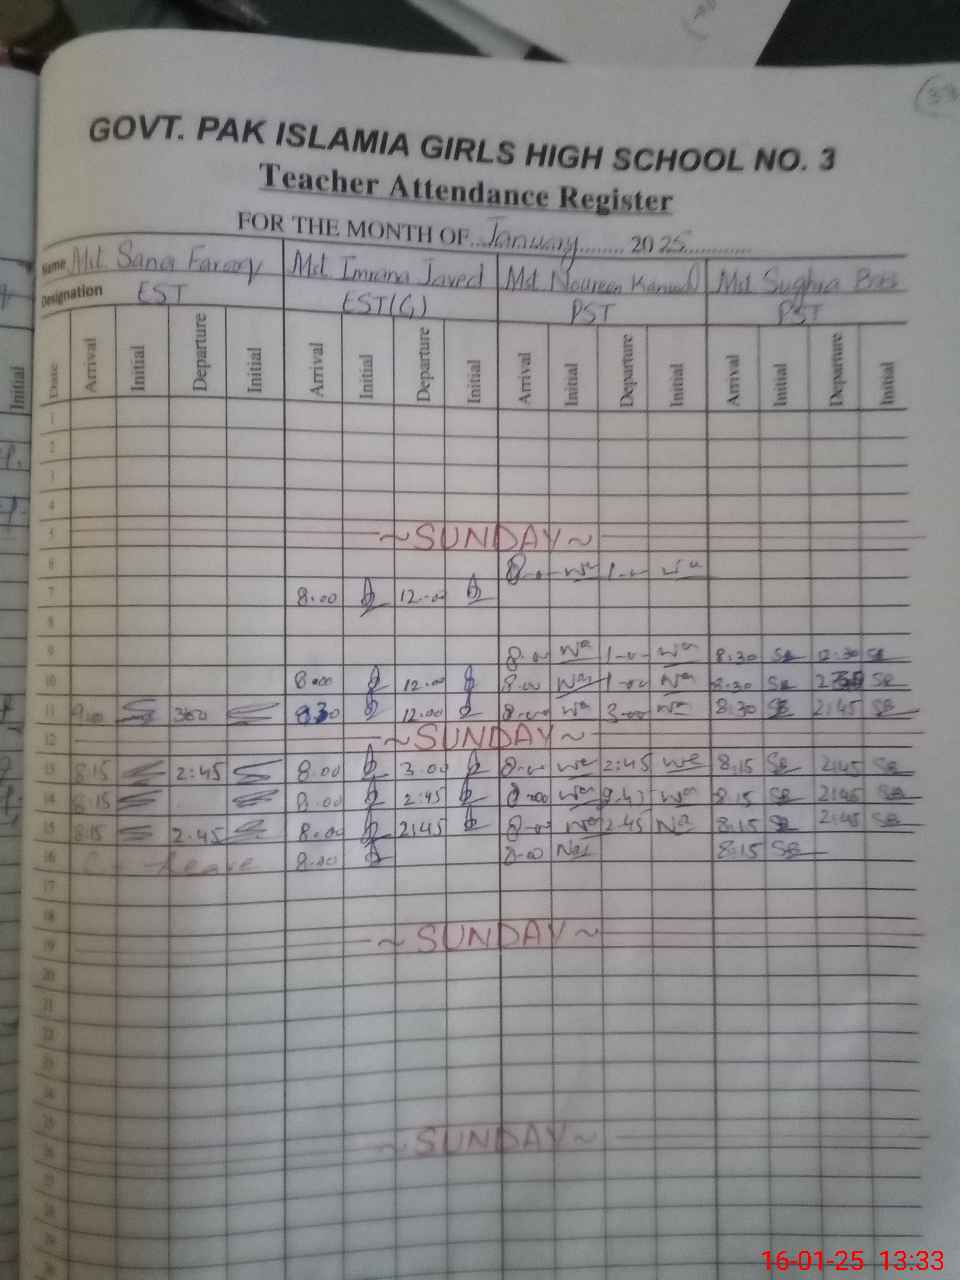 GOVT. PAK ISLAMIA GIRLS HIGH SCHOOL NO. 3
Teacher Attendance Register
FOR THE MONTH OF January 2025
Name Mst. Sana Farooq Mst Imrana Javed Mst Noureen Kanwal Mst Sughra
Designation EST EST(G) PST PST
Date Arrival Initial Departure Initial Arrival Initial Departure Initial Arrival Initial Departure Initial Arrival Initial Departure Initial
1
2
3
4
5 ~SUNDAY~
6 8-00 1-00
7 8.00 12.00
8
9 8-00 1-00 8:30 SB 12:30 SB
10 8.00 12.00 8.00 1-00 8:30 SB SB
11 9:00 300 12.00 8-00 3-00 8:30 SB 2:45 SB
12 ~SUNDAY~
13 8:15 2:45 8.00 3.00 8-00 2:45 8:15 SB 2:45 SB
14 8:15 8.00 2:45 8:15 SB 2:45 SB
15 8:15 2.45 8.00 2:45 8-00 2.45 Na 8:15 SB 2:45 SB
16 Leave 8.00 8-00 8:15 SB
17
18
19 ~SUNDAY~
20
21
22
23
24
25
26 ~SUNDAY~
27
28
29
16-01-25 13:33